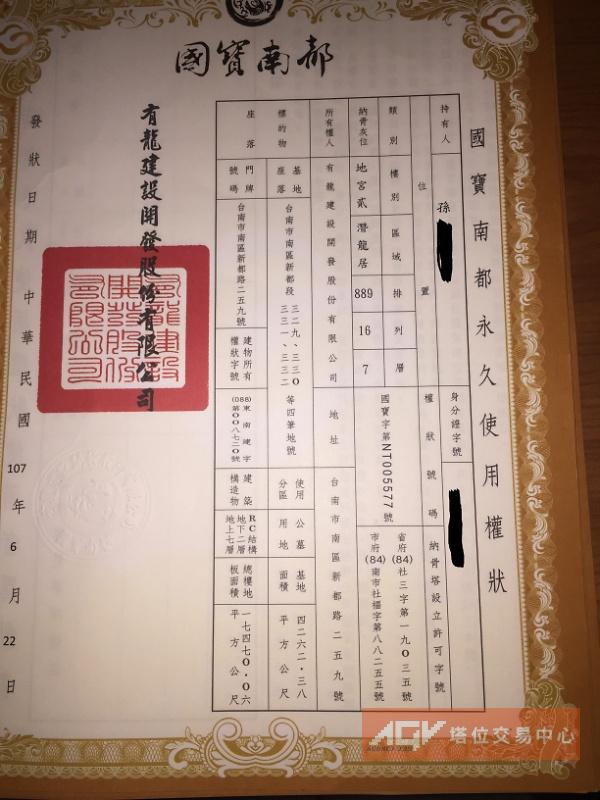 國寶南都
國寶南都永久使用權狀
持有人 孫 身分證字號
位置 權狀號碼 納骨塔設立許可字號
類別 樓別 區域 排 列 層
納骨灰位 地宮貳 潛龍居 889 16 7 國寶字第NT005577號 省府(84)社三字第一九0三五號
市府(84)南市社福字第八八二五五號
所有權人 有龍建設開發股份有限公司 地址 台南市南區新都路二五九號
標的物座落 基地座落 台南市南區新都段 三二九、三三0 三三一、三三二 等四筆地號 使用分區 公墓用地 基地面積 四二六二·三八平方公尺
門牌號碼 台南市南區新都路二五九號 建物所有權狀字號 (088)東南建字第00八七二0號 建築構造物 RC結構 地下二層 地上七層 總樓地板面積 一七四七0·0六平方公尺
有龍建設開發股份有限公司
發狀日期 中華民國 107 年 6 月 22 日
AGV 塔位交易中心